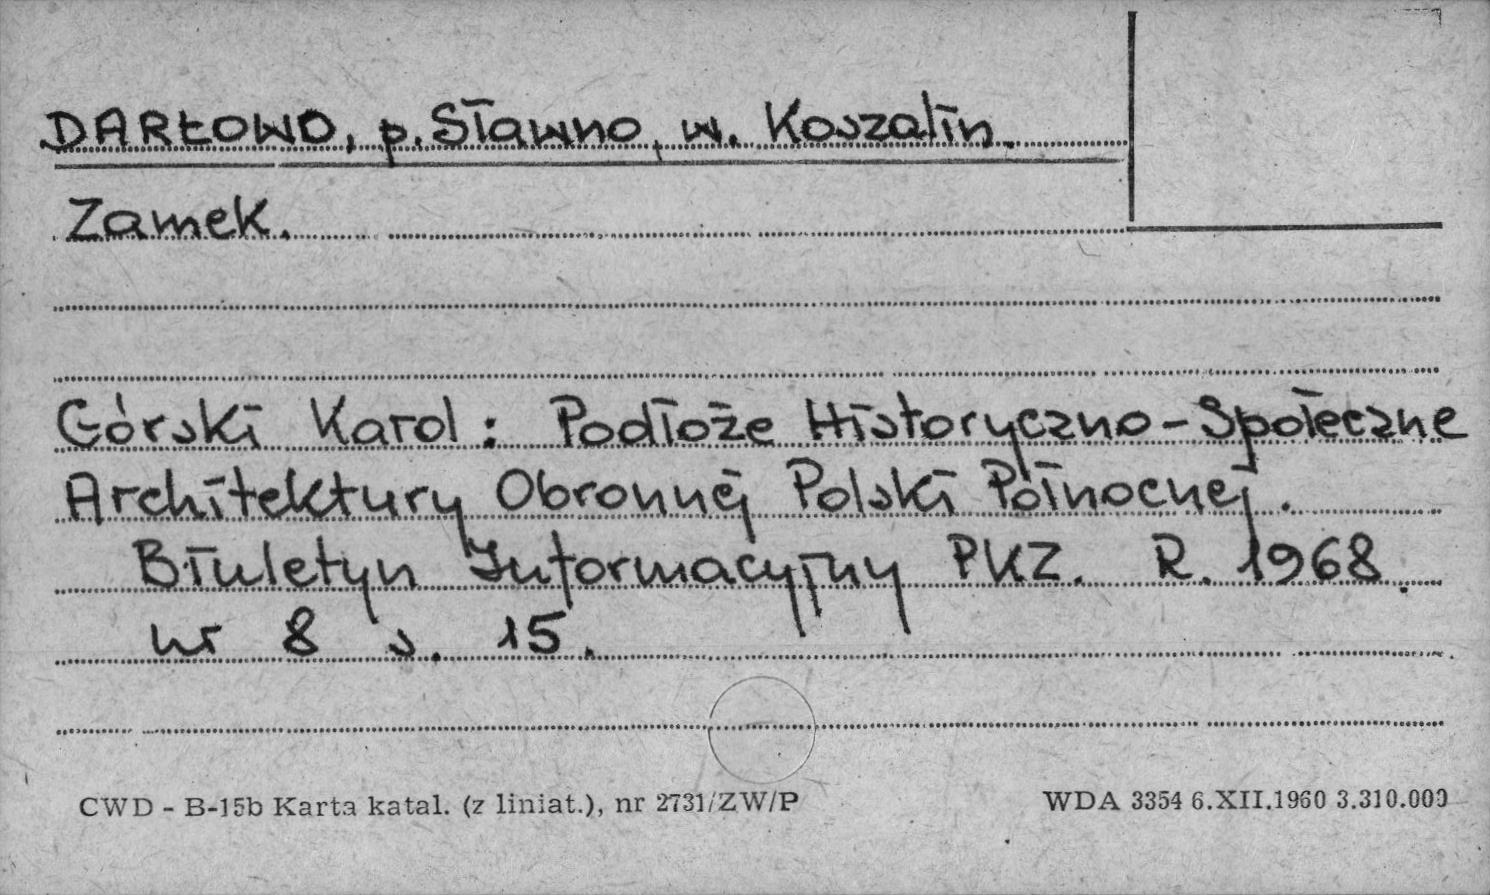 DARŁOWO, p. Sławno, w. Koszalin.
Zamek.
Górski Karol: Podłoże Historyczno-Społeczne
Architektury Obronnej Polski Północnej.
Biuletyn Informacyjny PKZ. R. 1968.
nr 8 s. 15.
CWD - B-15b Karta katal. (z liniat.), nr 2731/ZW/P
WDA 3354 6.XII.1960 3.310.000